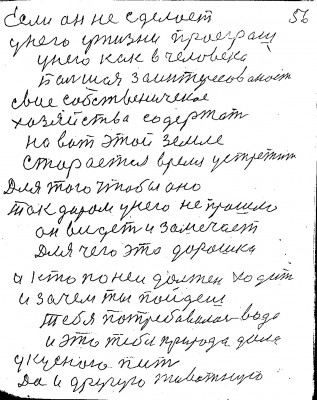 Если он не сделает 56
у него в жизни проеграш
у него как в человека
Балшая заинтересованост
свое собственическое
хозяйства содержат
на вот этой земле
старается время устретит
Для того чтобы оно
так даром у него не прошло
он видет и замечает
Для чего это дорошка
и кто по ней должен ходит
и зачем ты пойдеш
тебя потребавалас вода
и это тебе природа дала
укусного пит
Да и другую животную